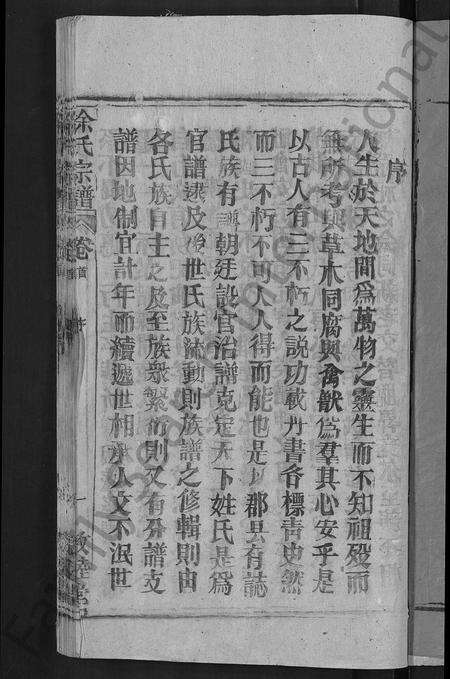 序
人生於天地間爲萬物之靈生而不知祖歿而
無所考與草木同腐與禽獸爲羣其心安乎是
以古人有三不朽之說功載丹書名標青史然
而三不朽不可人人得而能也是以郡县有誌
氏族有譜朝廷設官治譜克定天下姓氏是爲
官譜逮及後世氏族流動則族譜之修輯則由
各氏族自主之及至族衆繁衍則又有分譜支
譜因地制宜計年而續遞世相承人文不泯世
余氏宗譜
卷首
序
一